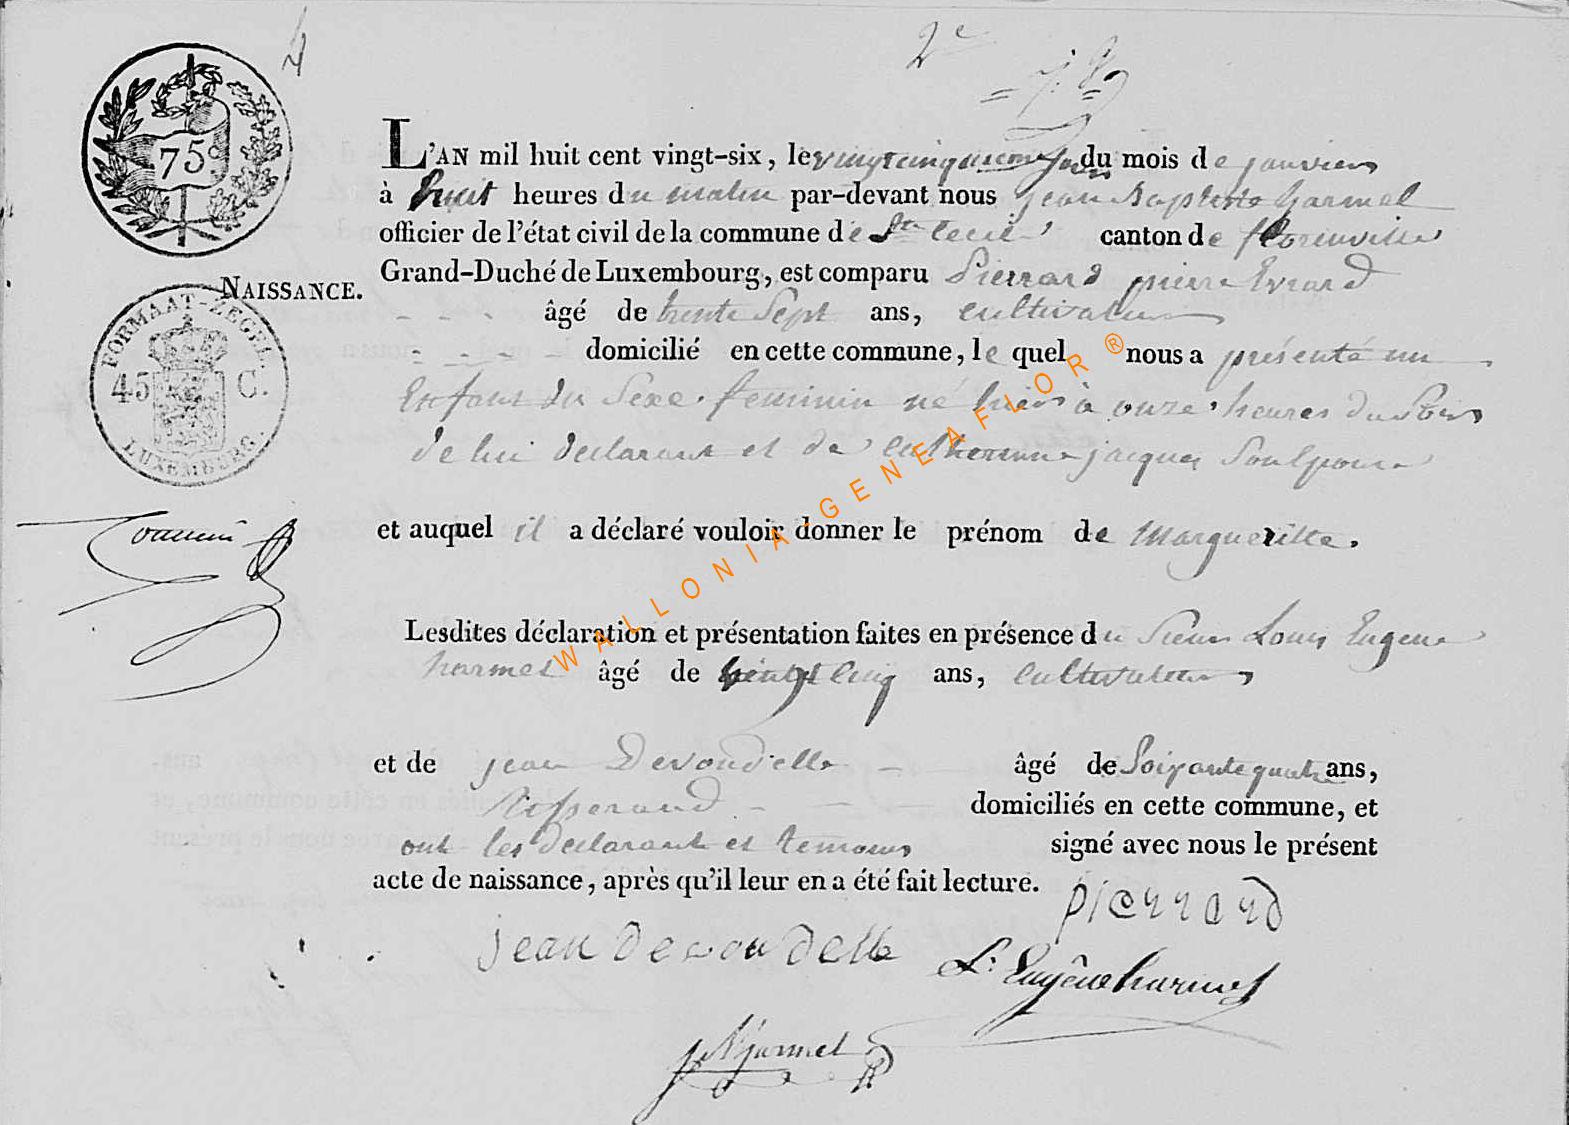 2e
75c
L'AN mil huit cent vingt-six, le vingtcinquieme jour du mois de janvier
à huit heures du matin par-devant nous jean Baptiste harmel
officier de l'état civil de la commune de Ste Cecile canton de florenville
NAISSANCE.
Grand-Duché de Luxembourg, est comparu Pierrard pierre Evrard
FORMAAT-ZEGEL
45 C.
LUXEMBURG.
âgé de trente Sept ans, cultivateur
domicilié en cette commune, le quel nous a présenté un
Enfant du Sexe feminin né hier à onze heures du Soir
de lui declarant et de catherinne jacques Son Epouse
et auquel il a déclaré vouloir donner le prénom de Margueritte.
Lesdites déclaration et présentation faites en présence du Sieur Louis Eugene
harmel âgé de vingt cinq ans, cultivateur
et de jean Devoudelle âgé de Soixante quatre ans,
domiciliés en cette commune, et
ont les declarant et temoins signé avec nous le présent
acte de naissance, après qu'il leur en a été fait lecture.
pierrard
jean Devoudelle
Ls Eugène harmel
harmel
WALLONIA-GENEAFLOR ®